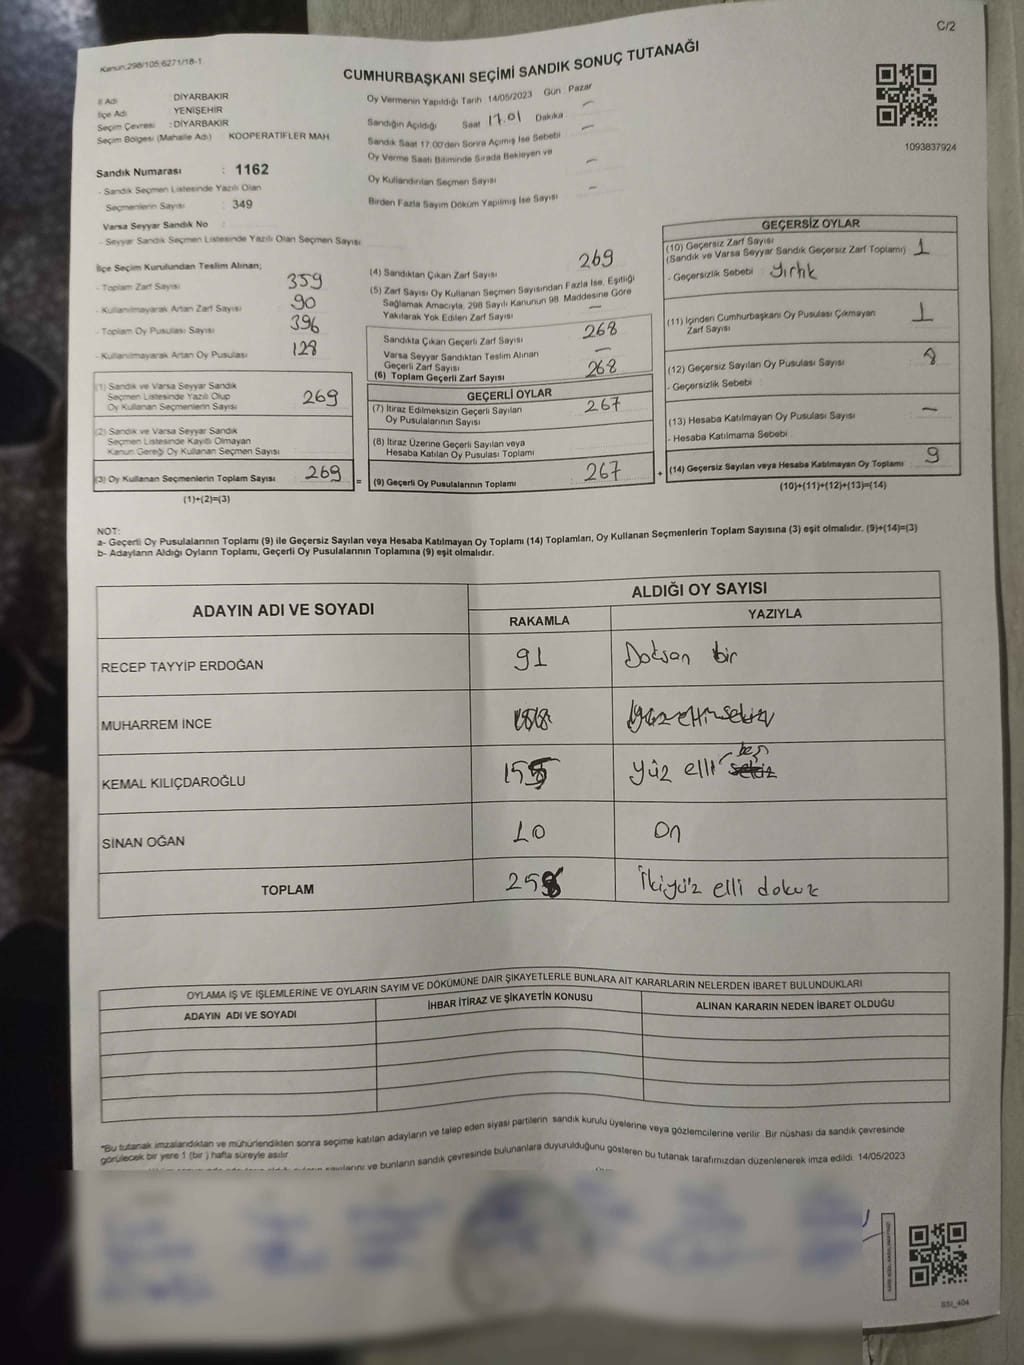 C/2
Kanun:298/105;6271/18-1
CUMHURBAŞKANI SEÇİMİ SANDIK SONUÇ TUTANAĞI
1093837924
İl Adı : DİYARBAKIR
İlçe Adı : YENİŞEHİR
Seçim Çevresi : DİYARBAKIR
Seçim Bölgesi (Mahalle Adı) KOOPERATİFLER MAH.
Sandık Numarası : 1162
- Sandık Seçmen Listesinde Yazılı Olan
Seçmenlerin Sayısı : 349
Varsa Seyyar Sandık No
- Seyyar Sandık Seçmen Listesinde Yazılı Olan Seçmen Sayısı
Oy Vermenin Yapıldığı Tarih 14/05/2023 Gün : Pazar
Sandığın Açıldığı Saat 17.01 Dakika —
Sandık Saat 17:00'den Sonra Açımış İse Sebebi —
Oy Verme Saati Bitiminde Sırada Bekleyen ve
Oy Kullandırılan Seçmen Sayısı —
Birden Fazla Sayım Döküm Yapılmış İse Sayısı —
İlçe Seçim Kurulundan Teslim Alınan;
- Toplam Zarf Sayısı 359
- Kullanılmayarak Artan Zarf Sayısı 90
- Toplam Oy Pusulası Sayısı 396
- Kullanılmayarak Artan Oy Pusulası 128
(1) Sandık ve Varsa Seyyar Sandık
Seçmen Listesinde Yazılı Olup
Oy Kullanan Seçmenlerin Sayısı 269
(2) Sandık ve Varsa Seyyar Sandık
Seçmen Listesinde Kayıtlı Olmayan
Kanun Gereği Oy Kullanan Seçmen Sayısı
(3) Oy Kullanan Seçmenlerin Toplam Sayısı 269 =
(1)+(2)=(3)
(4) Sandıktan Çıkan Zarf Sayısı 269
(5) Zarf Sayısı Oy Kullanan Seçmen Sayısından Fazla İse, Eşitliği
Sağlamak Amacıyla, 298 Sayılı Kanunun 98. Maddesine Göre
Yakılarak Yok Edilen Zarf Sayısı —
Sandıkta Çıkan Geçerli Zarf Sayısı 268
Varsa Seyyar Sandıktan Teslim Alınan
Geçerli Zarf Sayısı —
(6) Toplam Geçerli Zarf Sayısı 268
GEÇERLİ OYLAR
(7) İtiraz Edilmeksizin Geçerli Sayılan
Oy Pusulalarının Sayısı 267
(8) İtiraz Üzerine Geçerli Sayılan veya
Hesaba Katılan Oy Pusulası Toplamı
(9) Geçerli Oy Pusulalarının Toplamı 267 +
GEÇERSİZ OYLAR
(10) Geçersiz Zarf Sayısı
(Sandık ve Varsa Seyyar Sandık Geçersiz Zarf Toplamı) 1
- Geçersizlik Sebebi : Yırtık
(11) İçinden Cumhurbaşkanı Oy Pusulası Çıkmayan
Zarf Sayısı 1
(12) Geçersiz Sayılan Oy Pusulası Sayısı 8
- Geçersizlik Sebebi :
(13) Hesaba Katılmayan Oy Pusulası Sayısı —
- Hesaba Katılmama Sebebi :
(14) Geçersiz Sayılan veya Hesaba Katılmayan Oy Toplamı 9
(10)+(11)+(12)+(13)=(14)
NOT:
a- Geçerli Oy Pusulalarının Toplamı (9) ile Geçersiz Sayılan veya Hesaba Katılmayan Oy Toplamı (14) Toplamları, Oy Kullanan Seçmenlerin Toplam Sayısına (3) eşit olmalıdır. (9)+(14)=(3)
b- Adayların Aldığı Oyların Toplamı, Geçerli Oy Pusulalarının Toplamına (9) eşit olmalıdır.
ADAYIN ADI VE SOYADI
ALDIĞI OY SAYISI
RAKAMLA YAZIYLA
RECEP TAYYİP ERDOĞAN 91 Doksan bir
MUHARREM İNCE
KEMAL KILIÇDAROĞLU 155 Yüz elli beş
SİNAN OĞAN 10 On
TOPLAM İkiyüz elli dokuz
OYLAMA İŞ VE İŞLEMLERİNE VE OYLARIN SAYIM VE DÖKÜMÜNE DAİR ŞİKAYETLERLE BUNLARA AİT KARARLARIN NELERDEN İBARET BULUNDUKLARI
ADAYIN ADI VE SOYADI İHBAR İTİRAZ VE ŞİKAYETİN KONUSU ALINAN KARARIN NEDEN İBARET OLDUĞU
*Bu tutanak imzalandıktan ve mühürlendikten sonra seçime katılan adayların ve talep eden siyasi partilerin sandık kurulu üyelerine veya gözlemcilerine verilir. Bir nüshası da sandık çevresinde
görülecek bir yere 1 (bir ) hafta süreyle asılır.
ve bunların sandık çevresinde bulunanlara duyurulduğunu gösteren bu tutanak tarafımızdan düzenlenerek imza edildi. 14/05/2023
SSI_404